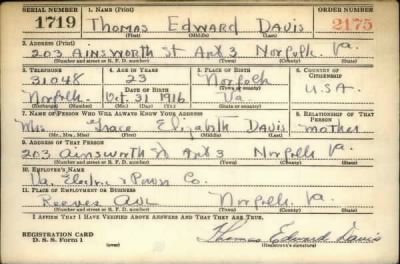 SERIAL NUMBER 1. NAME (Print) ORDER NUMBER
1719 Thomas Edward Davis 2175
(First) (Middle) (Last)
2. ADDRESS (Print)
203 Ainsworth St Apt 3 Norfolk Va.
(Number and street or R. F. D. number) (Town) (County) (State)
3. TELEPHONE 4. AGE IN YEARS 5. PLACE OF BIRTH 6. COUNTRY OF CITIZENSHIP
31048 23 Norfolk
DATE OF BIRTH (Town or county) U.S.A.
Norfolk Oct. 31 1916 Va
(Exchange) (Number) (Mo.) (Day) (Yr.) (State or country)
7. NAME OF PERSON WHO WILL ALWAYS KNOW YOUR ADDRESS 8. RELATIONSHIP OF THAT PERSON
Mrs Grace Elizabeth Davis mother
(Mr., Mrs., Miss) (First) (Middle) (Last)
9. ADDRESS OF THAT PERSON
203 Ainsworth St Apt 3 Norfolk Va
(Number and street or R. F. D. number) (Town) (County) (State)
10. EMPLOYER'S NAME
Va. Electric & Power Co.
11. PLACE OF EMPLOYMENT OR BUSINESS
Reeves Ave Norfolk Va.
(Number and street or R. F. D. number) (Town) (County) (State)
I AFFIRM THAT I HAVE VERIFIED ABOVE ANSWERS AND THAT THEY ARE TRUE.
REGISTRATION CARD
D. S. S. Form 1 Thomas Edward Davis
(Registrant's signature)